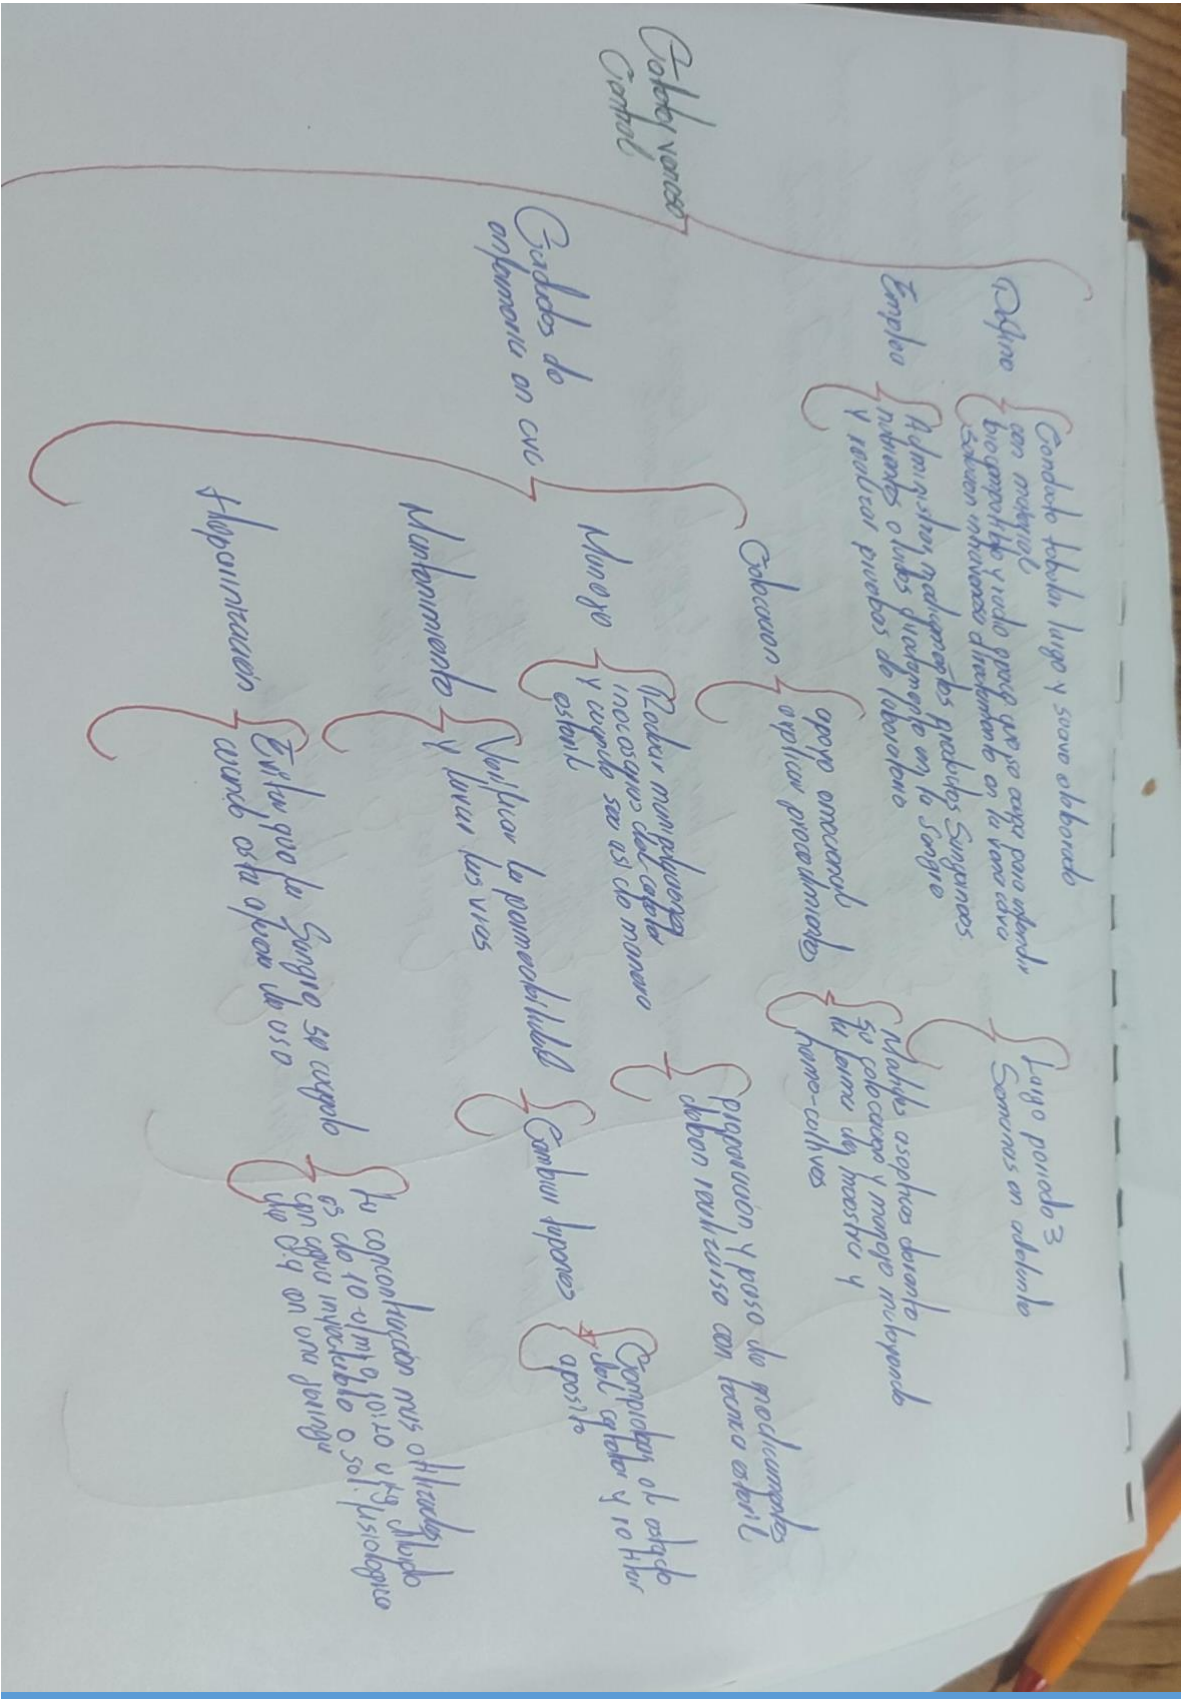 Catéter venoso
Central
Define
Conducto tubular largo y suave elaborado
con material
biocompatible y radio opaco que se ocupa para
solución intravenosa directamente en la vena cava
Largo periodo 3
Semanas en adelante
Empleo
Administrar medicamentos productos Sanguíneos
nutrientes o luidos directamente en la Sangre
y realizar pruebas de laboratorio
Cuidados de
enfermería en cvc
Colocación
apoyo emocional
explicar procedimientos
Medidas asépticas durante
su colocación y manejo incluyendo
la toma de muestra y
hemo-cultivos
Manejo
Reducir manipulaciones
innecesarias del catéter
y cuando sea así de manera
estéril
preparación y paso de medicamentos
deben realizarse con técnica estéril
Mantenimiento
Verificar la permeabilidad
y lavar las vías
Cambiar tapones
Comprobar el estado
del catéter y rotular
aposito
Heparinización
Evitar que la Sangre se coagule
cuando esta fuera de uso
la concentración mas utilizadas
es de 10 u/ml a 10:20 u/kg diluido
con agua inyectable o sol. fisiologica
de 0.9 en una jeringa